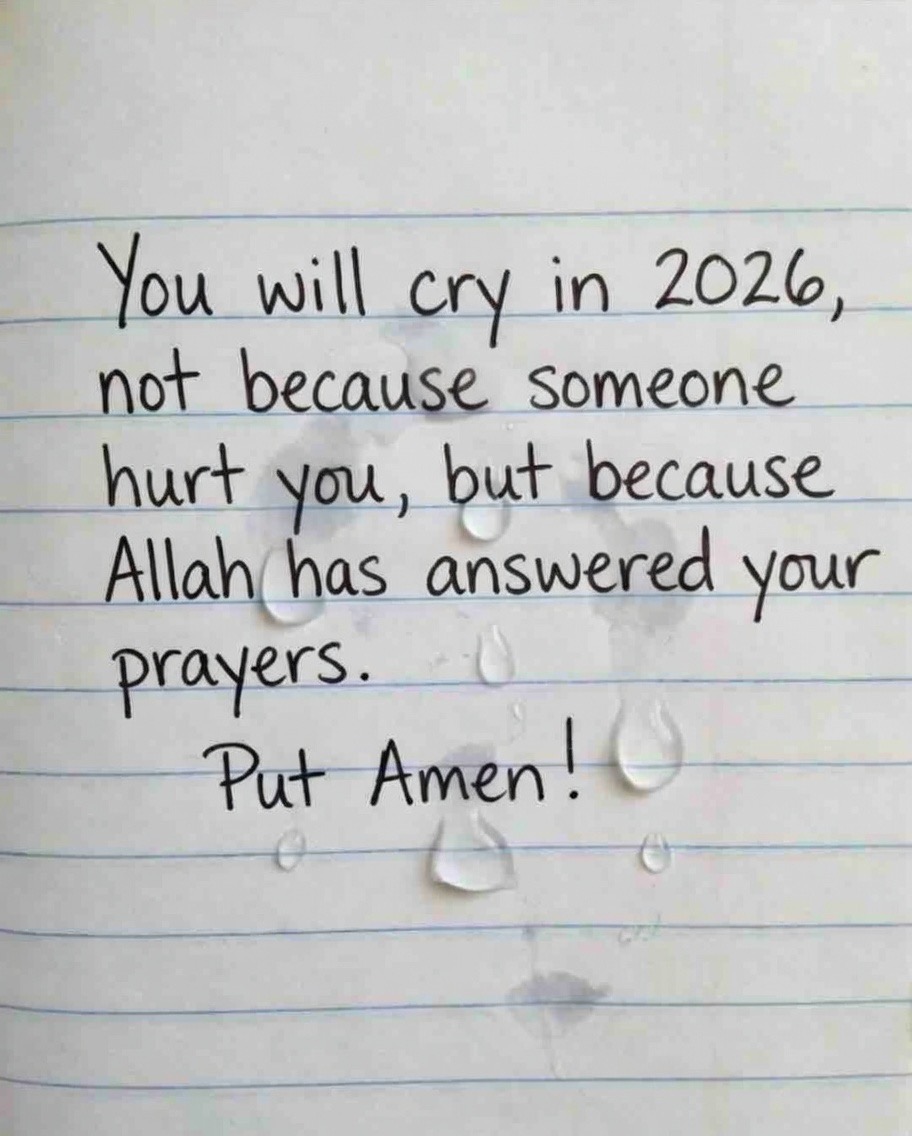 You will cry in 2026,
not because someone
hurt you, but because
Allah has answered your
prayers.
Put Amen!